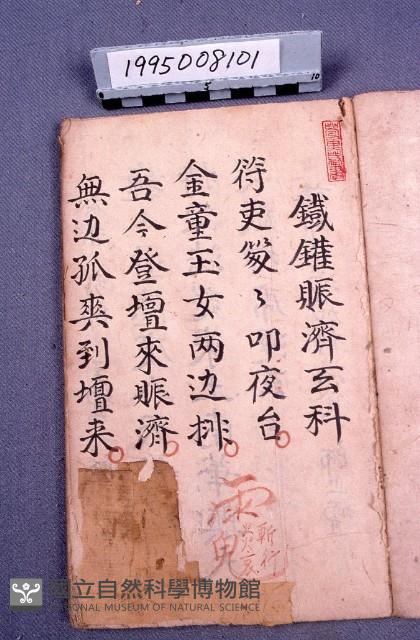 1995008101
5
10
鐵鑵賑濟玄科
符吏筊〻叩夜台
金童玉女两边排
吾今登壇來賑濟
無边孤爽到壇来
國立自然科學博物館
NATIONAL MUSEUM OF NATURAL SCIENCE